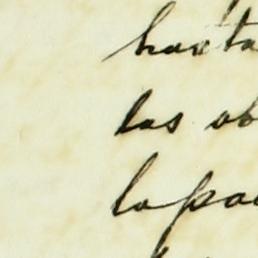 hasta
las ob
la pa